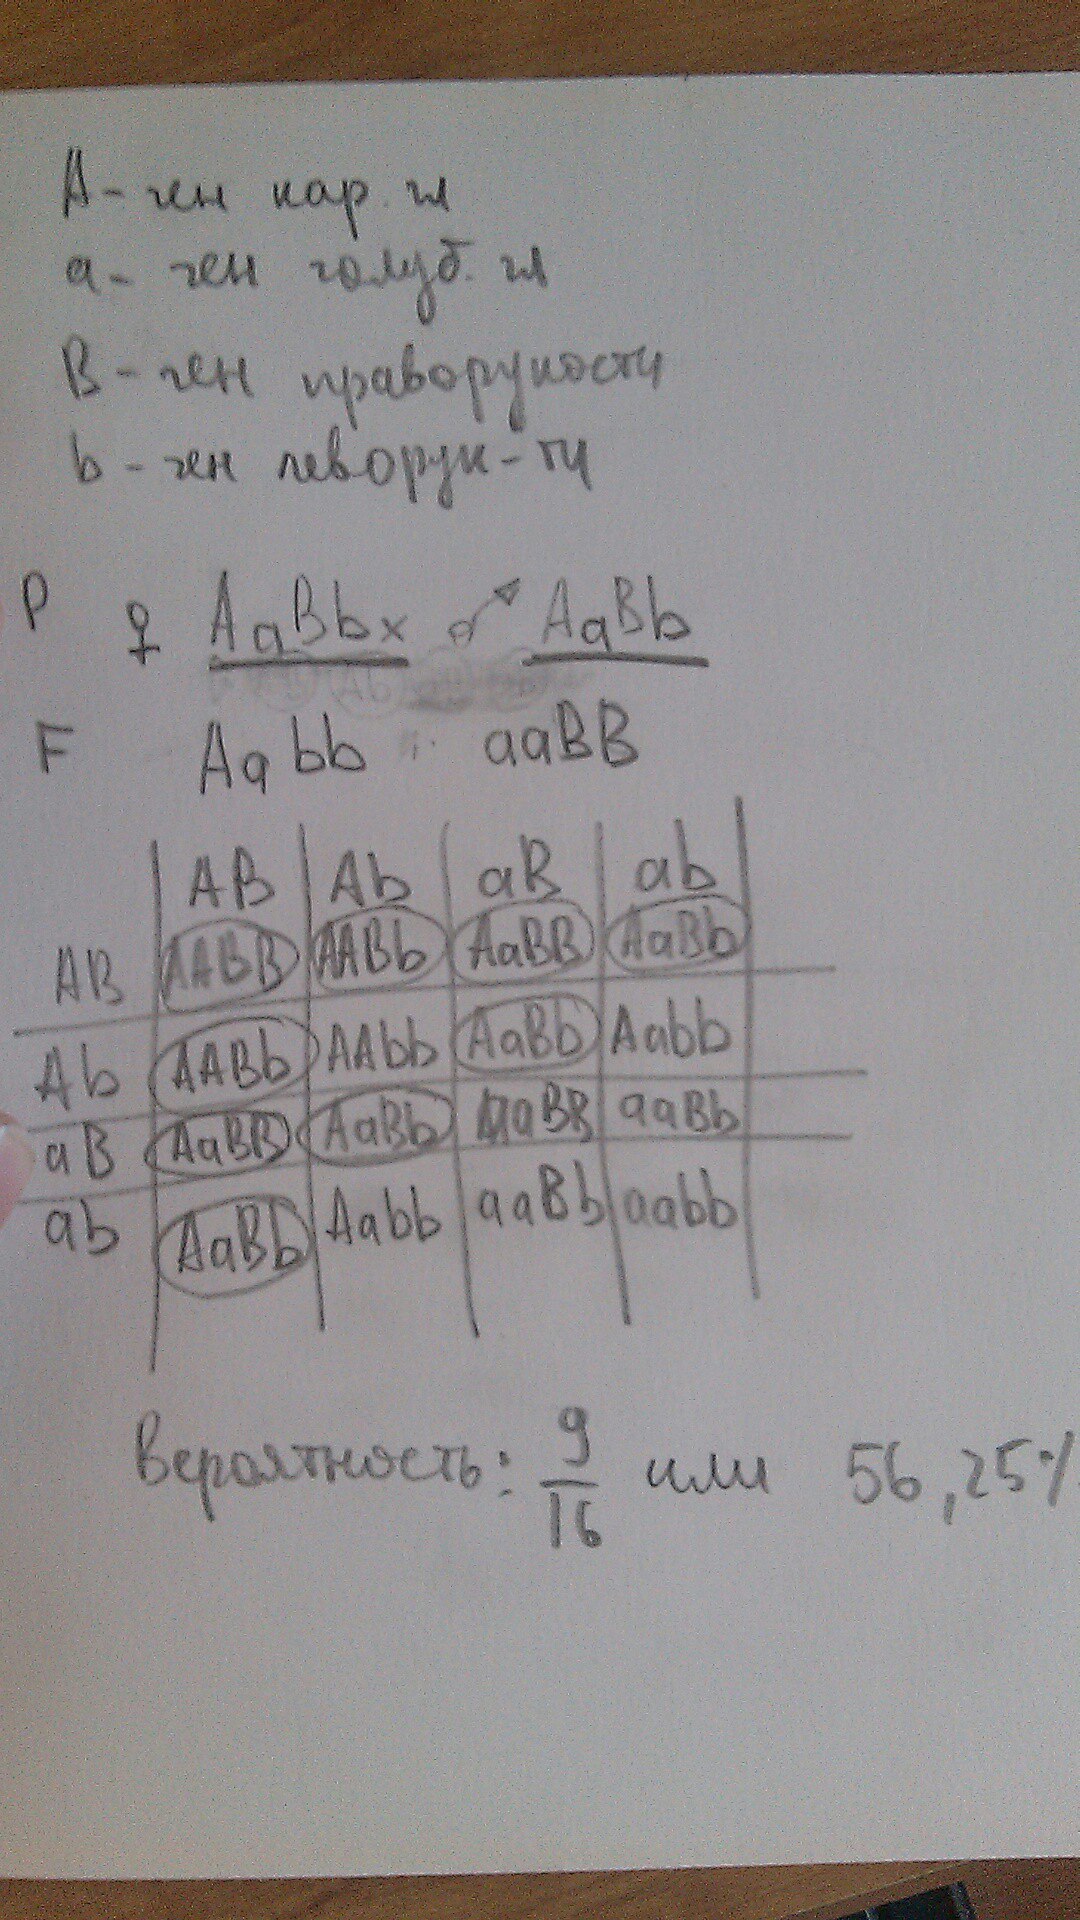 A - ген кар. гл
a - ген голуб. гл
B - ген праворукости
b - ген леворук-ти
P ♀ AaBb x ♂ AaBb
F Aabb aaBB
AB Ab aB ab
AB AABB AABb AaBB AaBb
Ab AABb AAbb AaBb Aabb
aB AaBB AaBb aaBB aaBb
ab AaBb Aabb aaBb aabb
вероятность: 9/16 или 56,25%